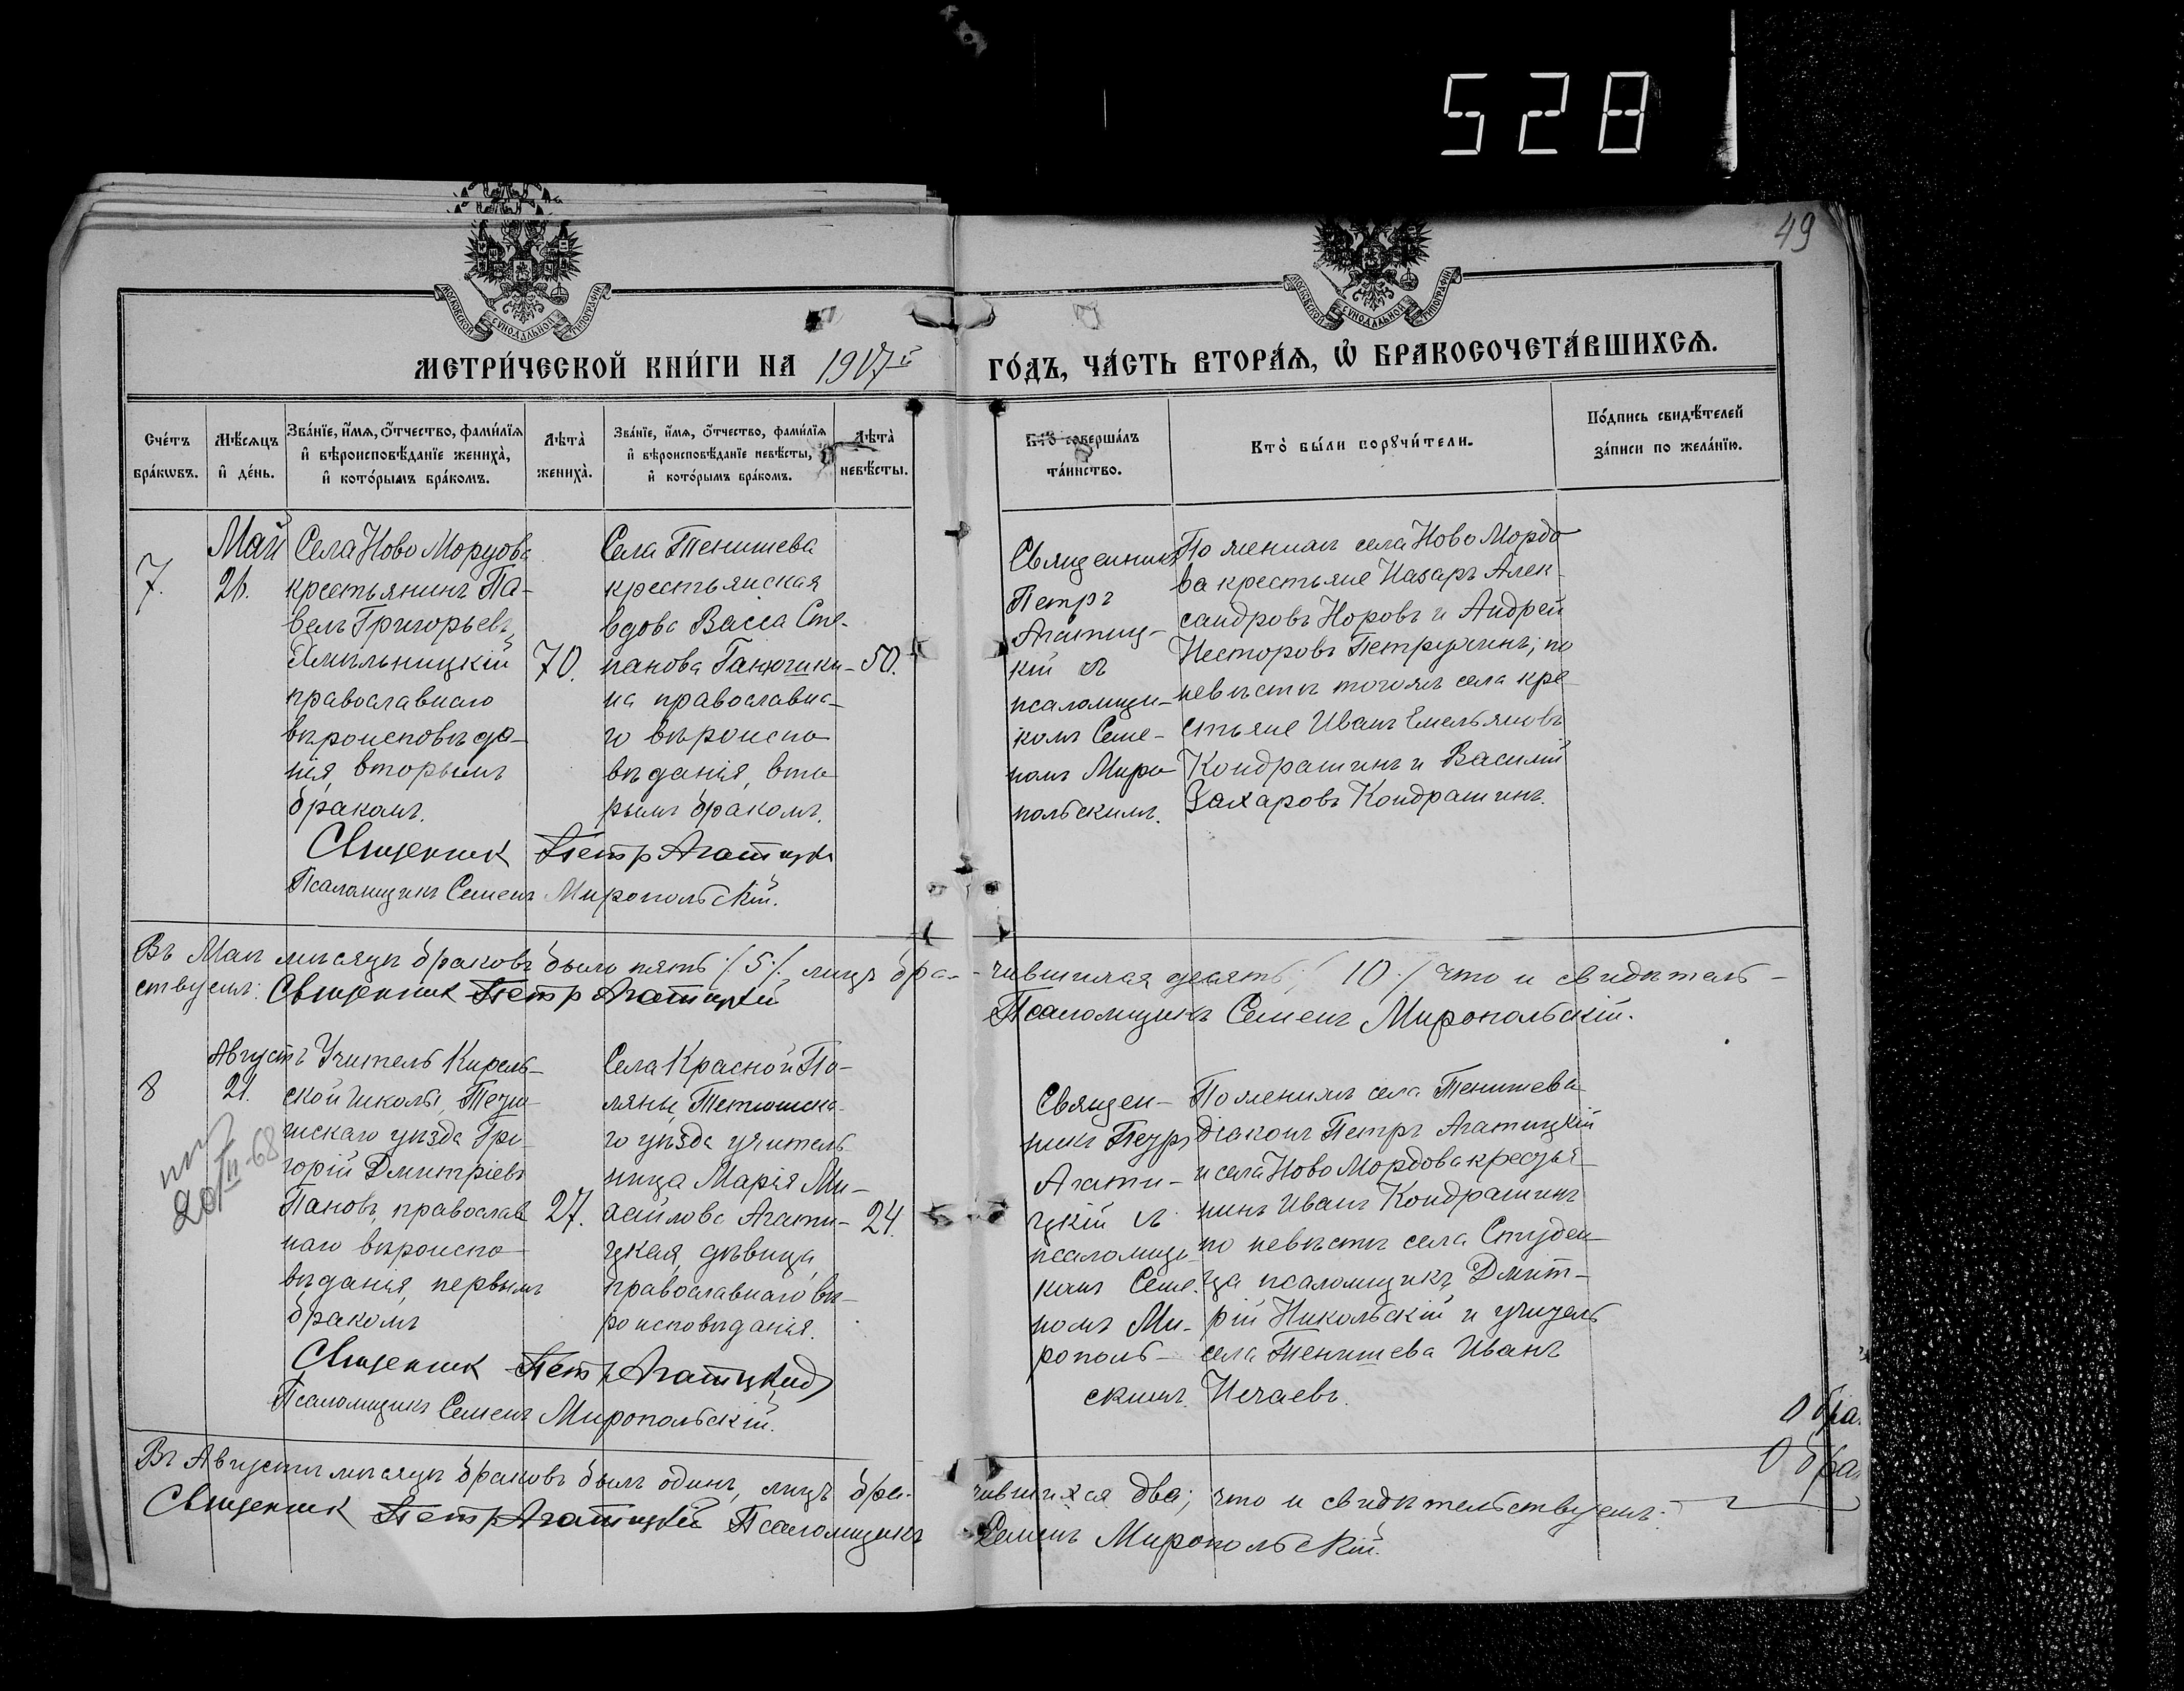 528
49
МОСКОВСКОЙ СѴНОДАЛЬНОЙ ТИПОГРАФІИ
МОСКОВСКОЙ СѴНОДАЛЬНОЙ ТИПОГРАФІИ
МЕТРИ́ЧЕСКОЙ КНИ́ГИ НА 1917й ГО́ДЪ, ЧА́СТЬ ВТОРА́Ѧ, Ѽ БРАКОСОЧЕТА́ВШИХСѦ.
Сче́тъ бра́кѡвъ.
Мѣ́сѧцъ и҆ де́нь.
Зва́нїе, и҆́мѧ, ѻ҆́тчество, фами́лїѧ и҆ вѣроисповѣ́данїе жениха̀, и҆ кото́рымъ бра́комъ.
Лѣта̀ жениха̀.
Зва́нїе, и҆́мѧ, ѻ҆́тчество, фами́лїѧ и҆ вѣроисповѣ́данїе невѣ́сты, и҆ кото́рымъ бра́комъ.
Лѣта̀ невѣ́сты.
Кто̀ соверша́лъ та́инство.
Кто̀ бы́ли порꙋчи́тели.
По́дпись свидѣ́телей за́писи по жела́нїю.
7.
Май
21.
Села Ново Мордова
крестьянинъ Па-
велъ Григорьевъ
Хмѣльницкій
православнаго
вѣроисповѣда-
нія, вторымъ
бракомъ.
70.
Села Тенишева
крестьянская
вдова Васса Сте-
панова
на православна-
го вѣроиспо
вѣданія, вто
рымъ бракомъ.
50.
Священникъ
Петръ
Агатиц-
кій съ
псаломщи-
комъ Семе-
номъ Миро
польскимъ.
По женихѣ села Ново Мордо
ва крестьяне Назаръ Алек-
сандровъ Норовъ и Андрей
Несторовъ Петрухинъ; по
невѣстѣ тогожъ села кре
стьяне Иванъ Емельяновъ
Кондрашинъ и Василій
Захаровъ Кондрашинъ.
Священник Петр Агатицкій
Псаломщикъ Семенъ Миропольскій.
Въ Маѣ мѣсяцѣ браковъ было пять /5/, лицъ бра-чившихся десять /10/ что и свидѣтель-
ствуемъ: Священник Петр Агатицкій Псаломщикъ Семенъ Миропольскій.
8
Августъ
21.
20/II-68
Учитель Кирель-
ской школы, Тетю-
шскаго уѣзда Гри
горій Дмитріевъ
Пановъ, православ
наго вѣроиспо-
вѣданія, первымъ
бракомъ
27.
Села Красной По-
ляны, Тетюшска-
го уѣзда учитель
ница Марія Ми-
хайлова Агати-
цкая, дѣвица,
православнаго вѣ-
роисповѣданія.
24.
Священ-
никъ Петръ
Агати-
цкій съ
псаломщи
комъ Семе-
номъ Ми-
рополь-
скимъ.
По женихѣ села Тенишева
діаконъ Петръ Агатицкій
и села Ново Мордова крестья-
нинъ Иванъ Кондрашинъ
по невѣстѣ села Студен-
ца псаломщикъ Дмит-
рій Никольскій и учитель
села Тенишева Иванъ
Нечаевъ.
Священник Петр Агатицкій
Псаломщикъ Семенъ Миропольскій.
Въ Августѣ мѣсяцѣ браковъ былъ одинъ, лицъ бра-чившихся два; что и свидѣтельствуемъ:
Священник Петр Агатицкій Псаломщикъ Семенъ Миропольскій.
О бра
О бра